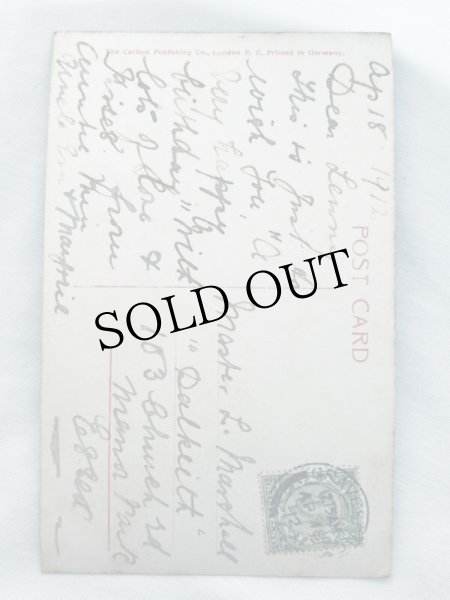 The Carlton Publishing Co., London E. C. Printed in Germany.
POST CARD
Ap 18 1912
Dear Lenn
This is Just to
wish you "A
very happy
birthday" with
lots of love &
kisses from
Auntie
Uncle & Marjorie
Master L. Marshall
"Dalkeith"
103 Church Rd
Manor Park
Essex
SOLD OUT